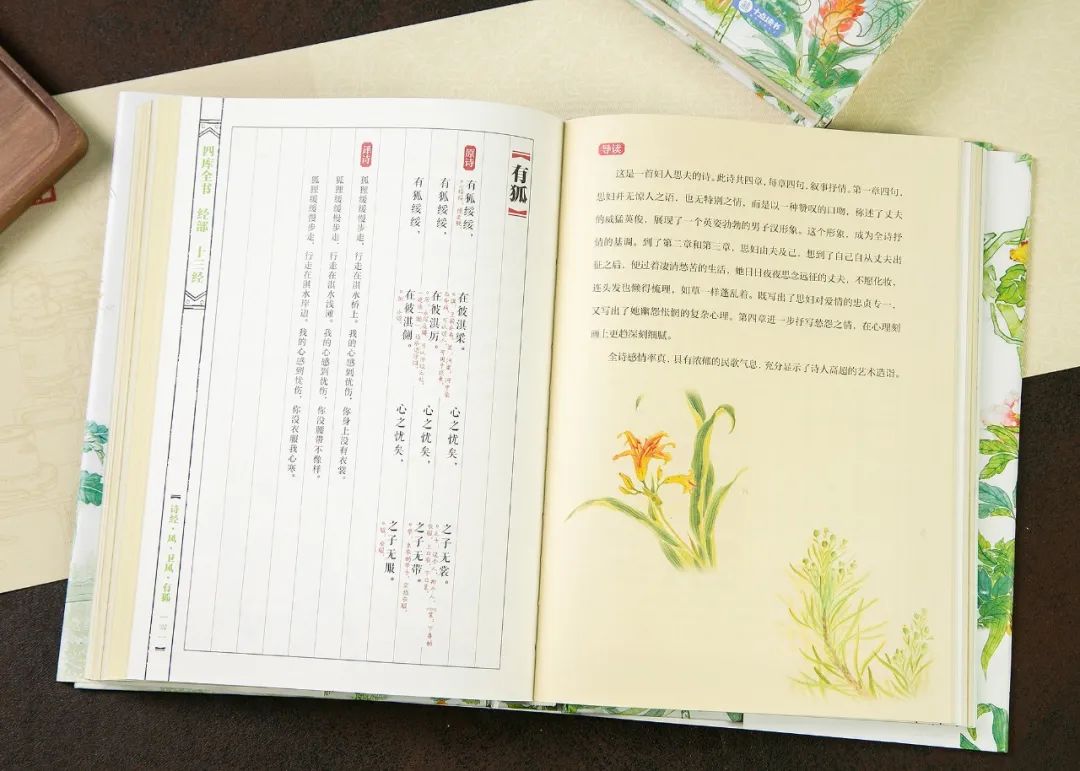 十点读书
导读
这是一首妇人思夫的诗。此诗共四章，每章四句，叙事抒情。第一章四句，
思妇并无惊人之语，也无特别之情，而是以一种赞叹的口吻，称述了丈夫
的威猛英俊，展现了一个英姿勃勃的男子汉形象。这个形象，成为全诗抒
情的基调。到了第二章和第三章，思妇由夫及己，想到了自己自从丈夫出
征之后，便过着凄清愁苦的生活，她日日夜夜思念远征的丈夫，不愿化妆，
连头发也懒得梳理，如草一样蓬乱着。既写出了思妇对爱情的忠贞专一，
又写出了她幽怨怅惘的复杂心理。第四章进一步抒写愁怨之情，在心理刻
画上更趋深刻细腻。
全诗感情率真，具有浓郁的民歌气息，充分显示了诗人高超的艺术造诣。
有狐
原诗
有狐绥绥，在彼淇梁。心之忧矣，之子无裳。
有狐绥绥，在彼淇厉。心之忧矣，之子无带。
有狐绥绥，在彼淇侧。心之忧矣，之子无服。
译诗
狐狸缓缓慢步走，行走在淇水桥上。我的心感到忧伤，你身上没有衣裳。
狐狸缓缓慢步走，行走在淇水浅滩。我的心感到忧伤，你没腰带不像样。
狐狸缓缓慢步走，行走在淇水岸边。我的心感到忧伤，你没衣服我心寒。
四库全书 经部 十三经
诗经·风·卫风·有狐